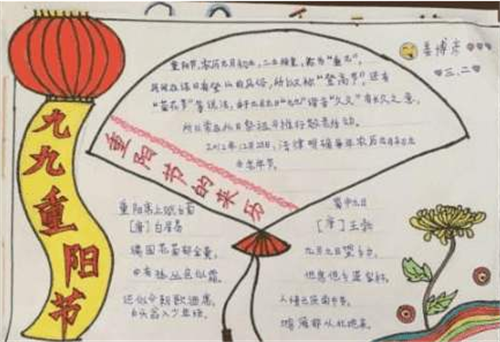 九九重阳节
重阳节,农历九月初九,二九相重,称为"重九",
民间在该日有登高的风俗,所以又称"登高节",还有
"菊花节"等说法,由于九月初九"九九"谐音"久久"有长久之意,
所以常在此日祭祖与推行敬老活动。
2012年12月28日,法律明确每年农历九月初九
为老年节。
重阳节的来历
姜博
三.二
重阳席上赋白菊
[唐]白居易
满园花菊郁金黄,
中有孤丛色似霜。
还似今朝歌酒席,
白头翁入少年场。
蜀中九日
[唐]王勃
九月九日望乡台,
他席他乡送客杯。
人情已厌南中苦,
鸿雁那从北地来。